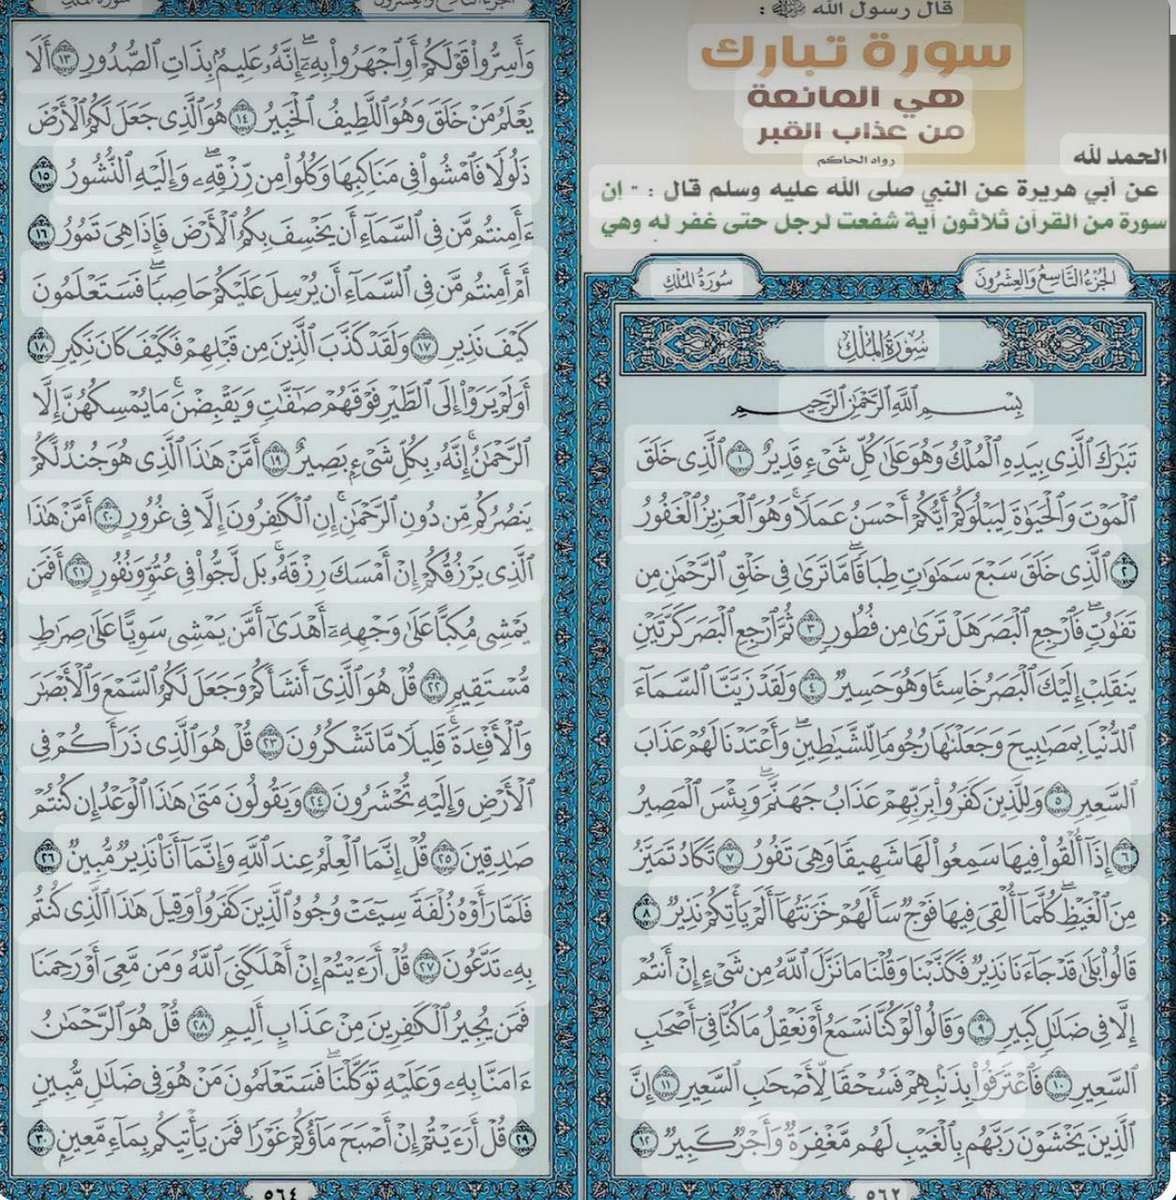 قال رسول الله ﷺ :
سورة تبارك
هي المانعة
من عذاب القبر
رواه الحاكم
الحمد لله
عن أبي هريرة عن النبي صلى الله عليه وسلم قال : - إن
سورة من القرآن ثلاثون آية شفعت لرجل حتى غفر له وهي
الجُزْءُ التَّاسِعُ وَالعِشْرُونَ سُورَةُ المُلْكِ
سُورَةُ المُلْكِ
بِسْمِ ٱللَّهِ ٱلرَّحْمَٰنِ ٱلرَّحِيمِ
تَبَٰرَكَ ٱلَّذِى بِيَدِهِ ٱلْمُلْكُ وَهُوَ عَلَىٰ كُلِّ شَىْءٍ قَدِيرٌ ١ ٱلَّذِى خَلَقَ
ٱلْمَوْتَ وَٱلْحَيَوٰةَ لِيَبْلُوَكُمْ أَيُّكُمْ أَحْسَنُ عَمَلًا ۚ وَهُوَ ٱلْعَزِيزُ ٱلْغَفُورُ
٢ ٱلَّذِى خَلَقَ سَبْعَ سَمَٰوَٰتٍ طِبَاقًا ۖ مَّا تَرَىٰ فِى خَلْقِ ٱلرَّحْمَٰنِ مِن
تَفَٰوُتٍ ۖ فَٱرْجِعِ ٱلْبَصَرَ هَلْ تَرَىٰ مِن فُطُورٍ ٣ ثُمَّ ٱرْجِعِ ٱلْبَصَرَ كَرَّتَيْنِ
يَنقَلِبْ إِلَيْكَ ٱلْبَصَرُ خَاسِئًا وَهُوَ حَسِيرٌ ٤ وَلَقَدْ زَيَّنَّا ٱلسَّمَآءَ
ٱلدُّنْيَا بِمَصَٰبِيحَ وَجَعَلْنَٰهَا رُجُومًا لِّلشَّيَٰطِينِ ۖ وَأَعْتَدْنَا لَهُمْ عَذَابَ
ٱلسَّعِيرِ ٥ وَلِلَّذِينَ كَفَرُوا۟ بِرَبِّهِمْ عَذَابُ جَهَنَّمَ ۖ وَبِئْسَ ٱلْمَصِيرُ
٦ إِذَآ أُلْقُوا۟ فِيهَا سَمِعُوا۟ لَهَا شَهِيقًا وَهِىَ تَفُورُ ٧ تَكَادُ تَمَيَّزُ
مِنَ ٱلْغَيْظِ ۖ كُلَّمَآ أُلْقِىَ فِيهَا فَوْجٌ سَأَلَهُمْ خَزَنَتُهَآ أَلَمْ يَأْتِكُمْ نَذِيرٌ ٨
قَالُوا۟ بَلَىٰ قَدْ جَآءَنَا نَذِيرٌ فَكَذَّبْنَا وَقُلْنَا مَا نَزَّلَ ٱللَّهُ مِن شَىْءٍ إِنْ أَنتُمْ
إِلَّا فِى ضَلَٰلٍ كَبِيرٍ ٩ وَقَالُوا۟ لَوْ كُنَّا نَسْمَعُ أَوْ نَعْقِلُ مَا كُنَّا فِىٓ أَصْحَٰبِ
ٱلسَّعِيرِ ١٠ فَٱعْتَرَفُوا۟ بِذَنۢبِهِمْ فَسُحْقًا لِّأَصْحَٰبِ ٱلسَّعِيرِ ١١ إِنَّ
ٱلَّذِينَ يَخْشَوْنَ رَبَّهُم بِٱلْغَيْبِ لَهُم مَّغْفِرَةٌ وَأَجْرٌ كَبِيرٌ ١٢
٥٦٢
الجُزْءُ التَّاسِعُ وَالعِشْرُونَ سُورَةُ المُلْكِ
وَأَسِرُّوا۟ قَوْلَكُمْ أَوِ ٱجْهَرُوا۟ بِهِۦٓ ۖ إِنَّهُۥ عَلِيمٌۢ بِذَاتِ ٱلصُّدُورِ ١٣ أَلَا
يَعْلَمُ مَنْ خَلَقَ وَهُوَ ٱللَّطِيفُ ٱلْخَبِيرُ ١٤ هُوَ ٱلَّذِى جَعَلَ لَكُمُ ٱلْأَرْضَ
ذَلُولًا فَٱمْشُوا۟ فِى مَنَاكِبِهَا وَكُلُوا۟ مِن رِّزْقِهِۦ ۖ وَإِلَيْهِ ٱلنُّشُورُ ١٥
ءَأَمِنتُم مَّن فِى ٱلسَّمَآءِ أَن يَخْسِفَ بِكُمُ ٱلْأَرْضَ فَإِذَا هِىَ تَمُورُ ١٦
أَمْ أَمِنتُم مَّن فِى ٱلسَّمَآءِ أَن يُرْسِلَ عَلَيْكُمْ حَاصِبًا ۖ فَسَتَعْلَمُونَ
كَيْفَ نَذِيرِ ١٧ وَلَقَدْ كَذَّبَ ٱلَّذِينَ مِن قَبْلِهِمْ فَكَيْفَ كَانَ نَكِيرِ ١٨
أَوَلَمْ يَرَوْا۟ إِلَى ٱلطَّيْرِ فَوْقَهُمْ صَٰٓفَّٰتٍ وَيَقْبِضْنَ ۚ مَا يُمْسِكُهُنَّ إِلَّا
ٱلرَّحْمَٰنُ ۚ إِنَّهُۥ بِكُلِّ شَىْءٍۭ بَصِيرٌ ١٩ أَمَّنْ هَٰذَا ٱلَّذِى هُوَ جُندٌ لَّكُمْ
يَنصُرُكُم مِّن دُونِ ٱلرَّحْمَٰنِ ۚ إِنِ ٱلْكَٰفِرُونَ إِلَّا فِى غُرُورٍ ٢٠ أَمَّنْ هَٰذَا
ٱلَّذِى يَرْزُقُكُمْ إِنْ أَمْسَكَ رِزْقَهُۥ ۚ بَل لَّجُّوا۟ فِى عُتُوٍّ وَنُفُورٍ ٢١ أَفَمَن
يَمْشِى مُكِبًّا عَلَىٰ وَجْهِهِۦٓ أَهْدَىٰٓ أَمَّن يَمْشِى سَوِيًّا عَلَىٰ صِرَٰطٍ
مُّسْتَقِيمٍ ٢٢ قُلْ هُوَ ٱلَّذِىٓ أَنشَأَكُمْ وَجَعَلَ لَكُمُ ٱلسَّمْعَ وَٱلْأَبْصَٰرَ
وَٱلْأَفْـِٔدَةَ ۖ قَلِيلًا مَّا تَشْكُرُونَ ٢٣ قُلْ هُوَ ٱلَّذِى ذَرَأَكُمْ فِى
ٱلْأَرْضِ وَإِلَيْهِ تُحْشَرُونَ ٢٤ وَيَقُولُونَ مَتَىٰ هَٰذَا ٱلْوَعْدُ إِن كُنتُمْ
صَٰدِقِينَ ٢٥ قُلْ إِنَّمَا ٱلْعِلْمُ عِندَ ٱللَّهِ وَإِنَّمَآ أَنَا۠ نَذِيرٌ مُّبِينٌ ٢٦
فَلَمَّا رَأَوْهُ زُلْفَةً سِيٓـَٔتْ وُجُوهُ ٱلَّذِينَ كَفَرُوا۟ وَقِيلَ هَٰذَا ٱلَّذِى كُنتُم
بِهِۦ تَدَّعُونَ ٢٧ قُلْ أَرَءَيْتُمْ إِنْ أَهْلَكَنِىَ ٱللَّهُ وَمَن مَّعِىَ أَوْ رَحِمَنَا
فَمَن يُجِيرُ ٱلْكَٰفِرِينَ مِنْ عَذَابٍ أَلِيمٍ ٢٨ قُلْ هُوَ ٱلرَّحْمَٰنُ
ءَامَنَّا بِهِۦ وَعَلَيْهِ تَوَكَّلْنَا ۖ فَسَتَعْلَمُونَ مَنْ هُوَ فِى ضَلَٰلٍ مُّبِينٍ
٢٩ قُلْ أَرَءَيْتُمْ إِنْ أَصْبَحَ مَآؤُكُمْ غَوْرًا فَمَن يَأْتِيكُم بِمَآءٍ مَّعِينٍۭ ٣٠
٥٦٤